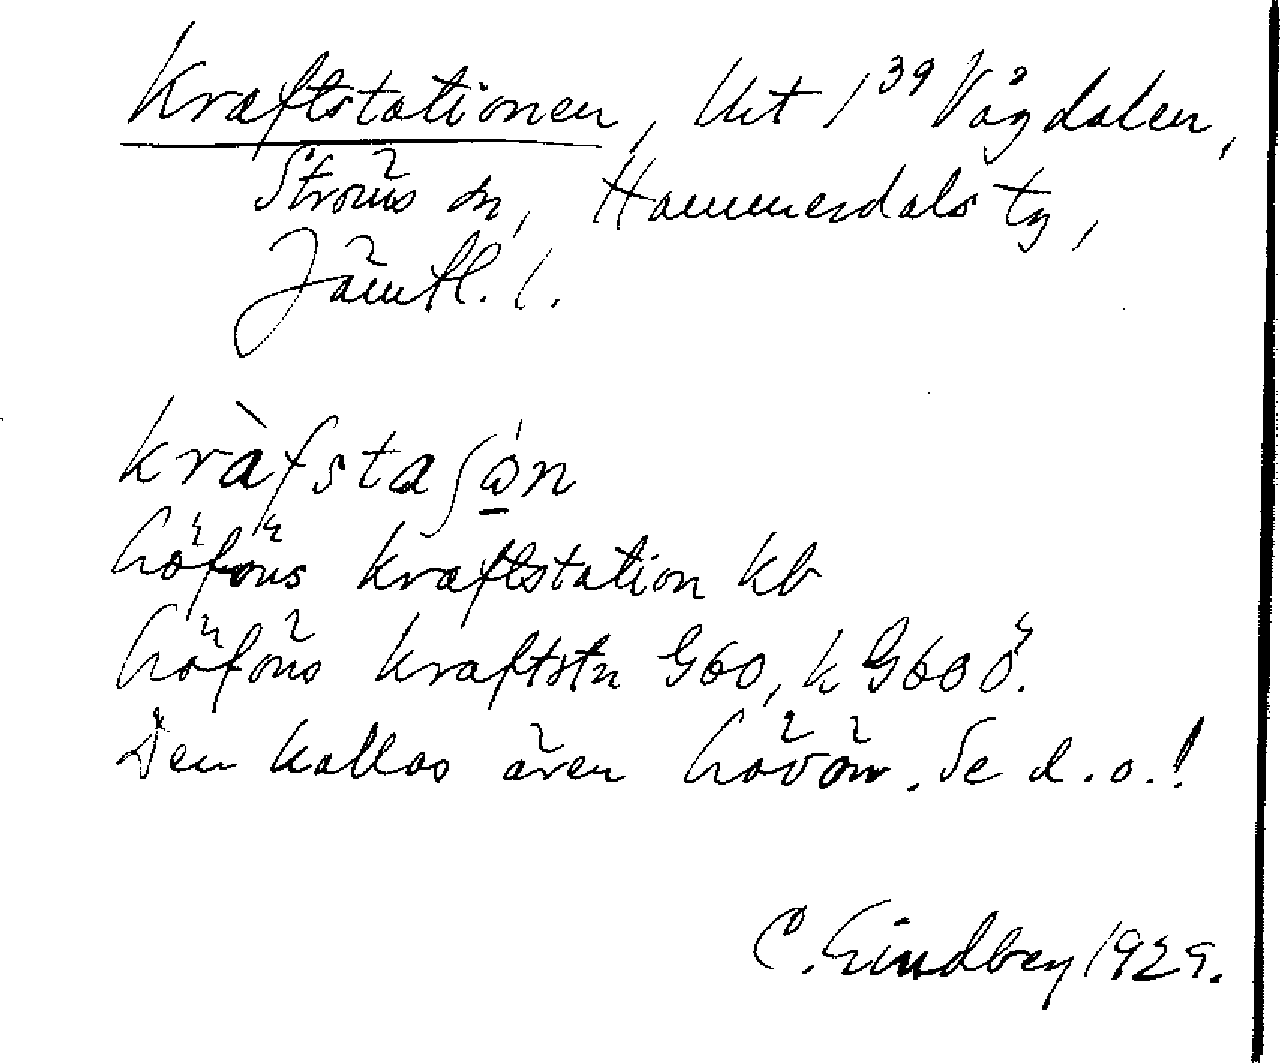 Kraftstationen, Utt 1³⁹ Vågdalen,
Ströms sn, Hammerdals tg,
Jämtl. l.
kràfstaʃώ̱n
Löföns kraftstation kb
Löföns kraftstn G60, k G60 Ö.
Den kallas även Lövön. Se d. o.!
C. Lindberg 1929.